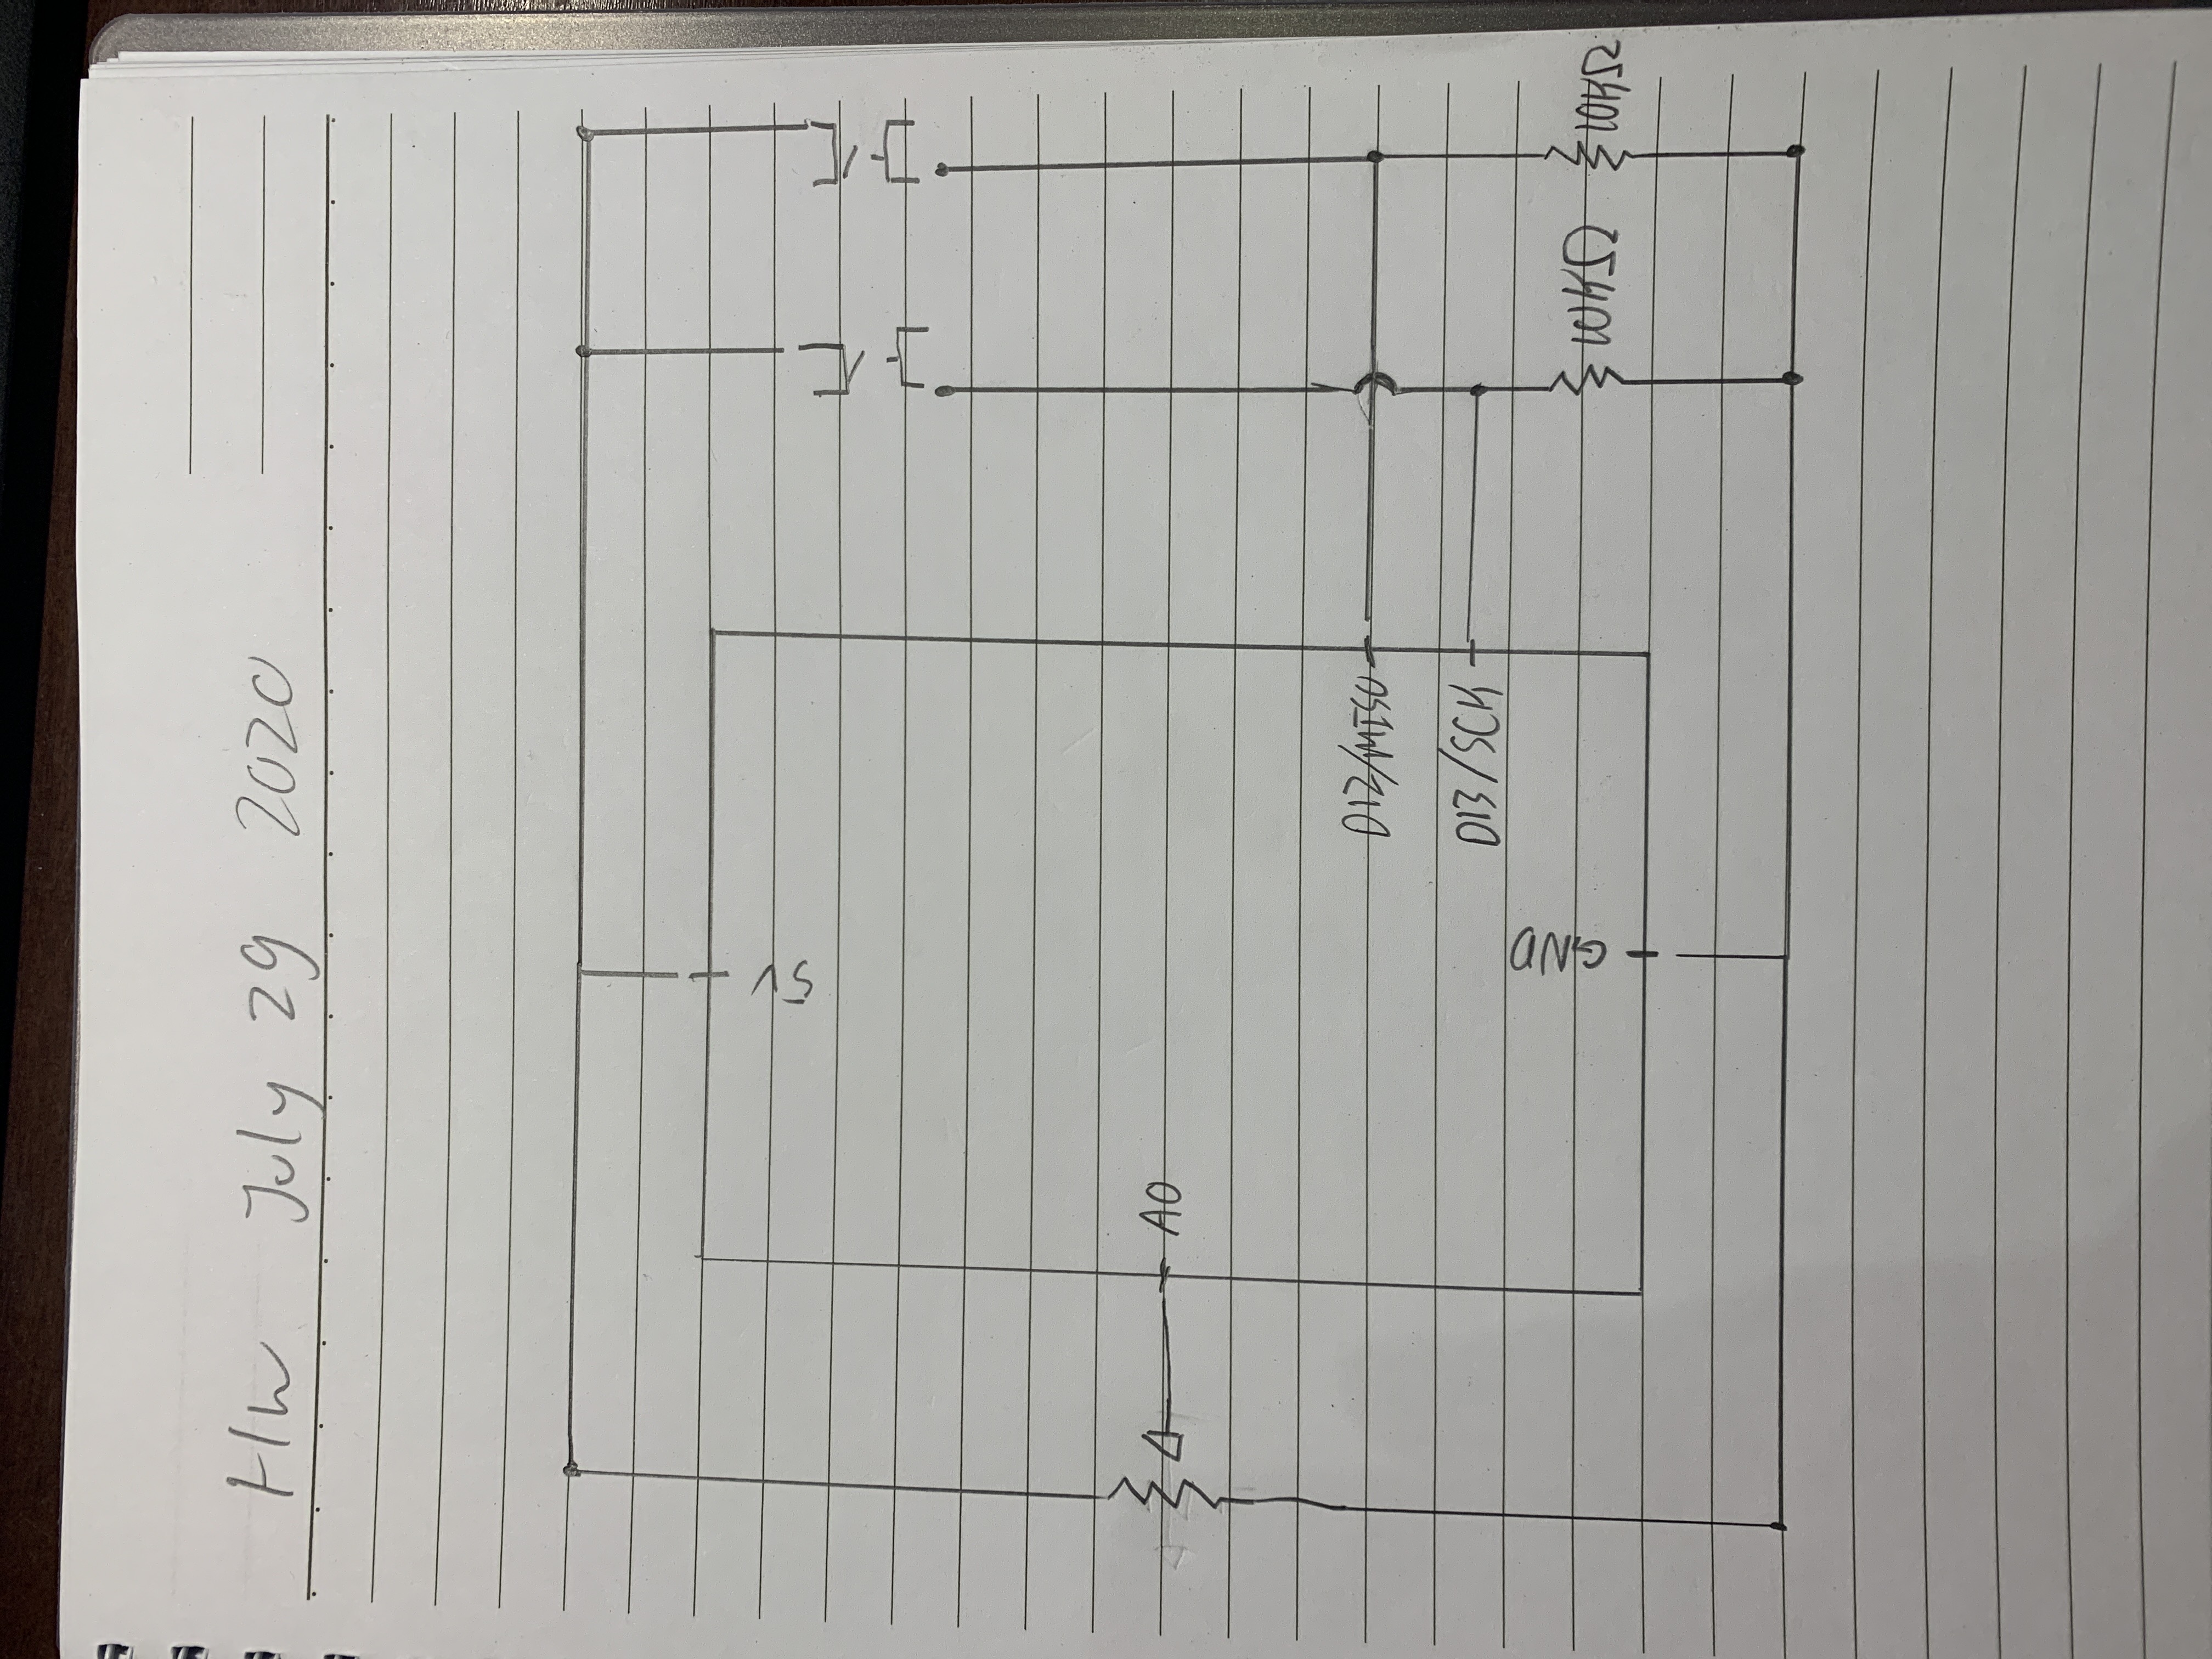 HW July 29 2020
5V
A0
D12/MISO
D13/SCK
GND
10KΩ 10KΩ